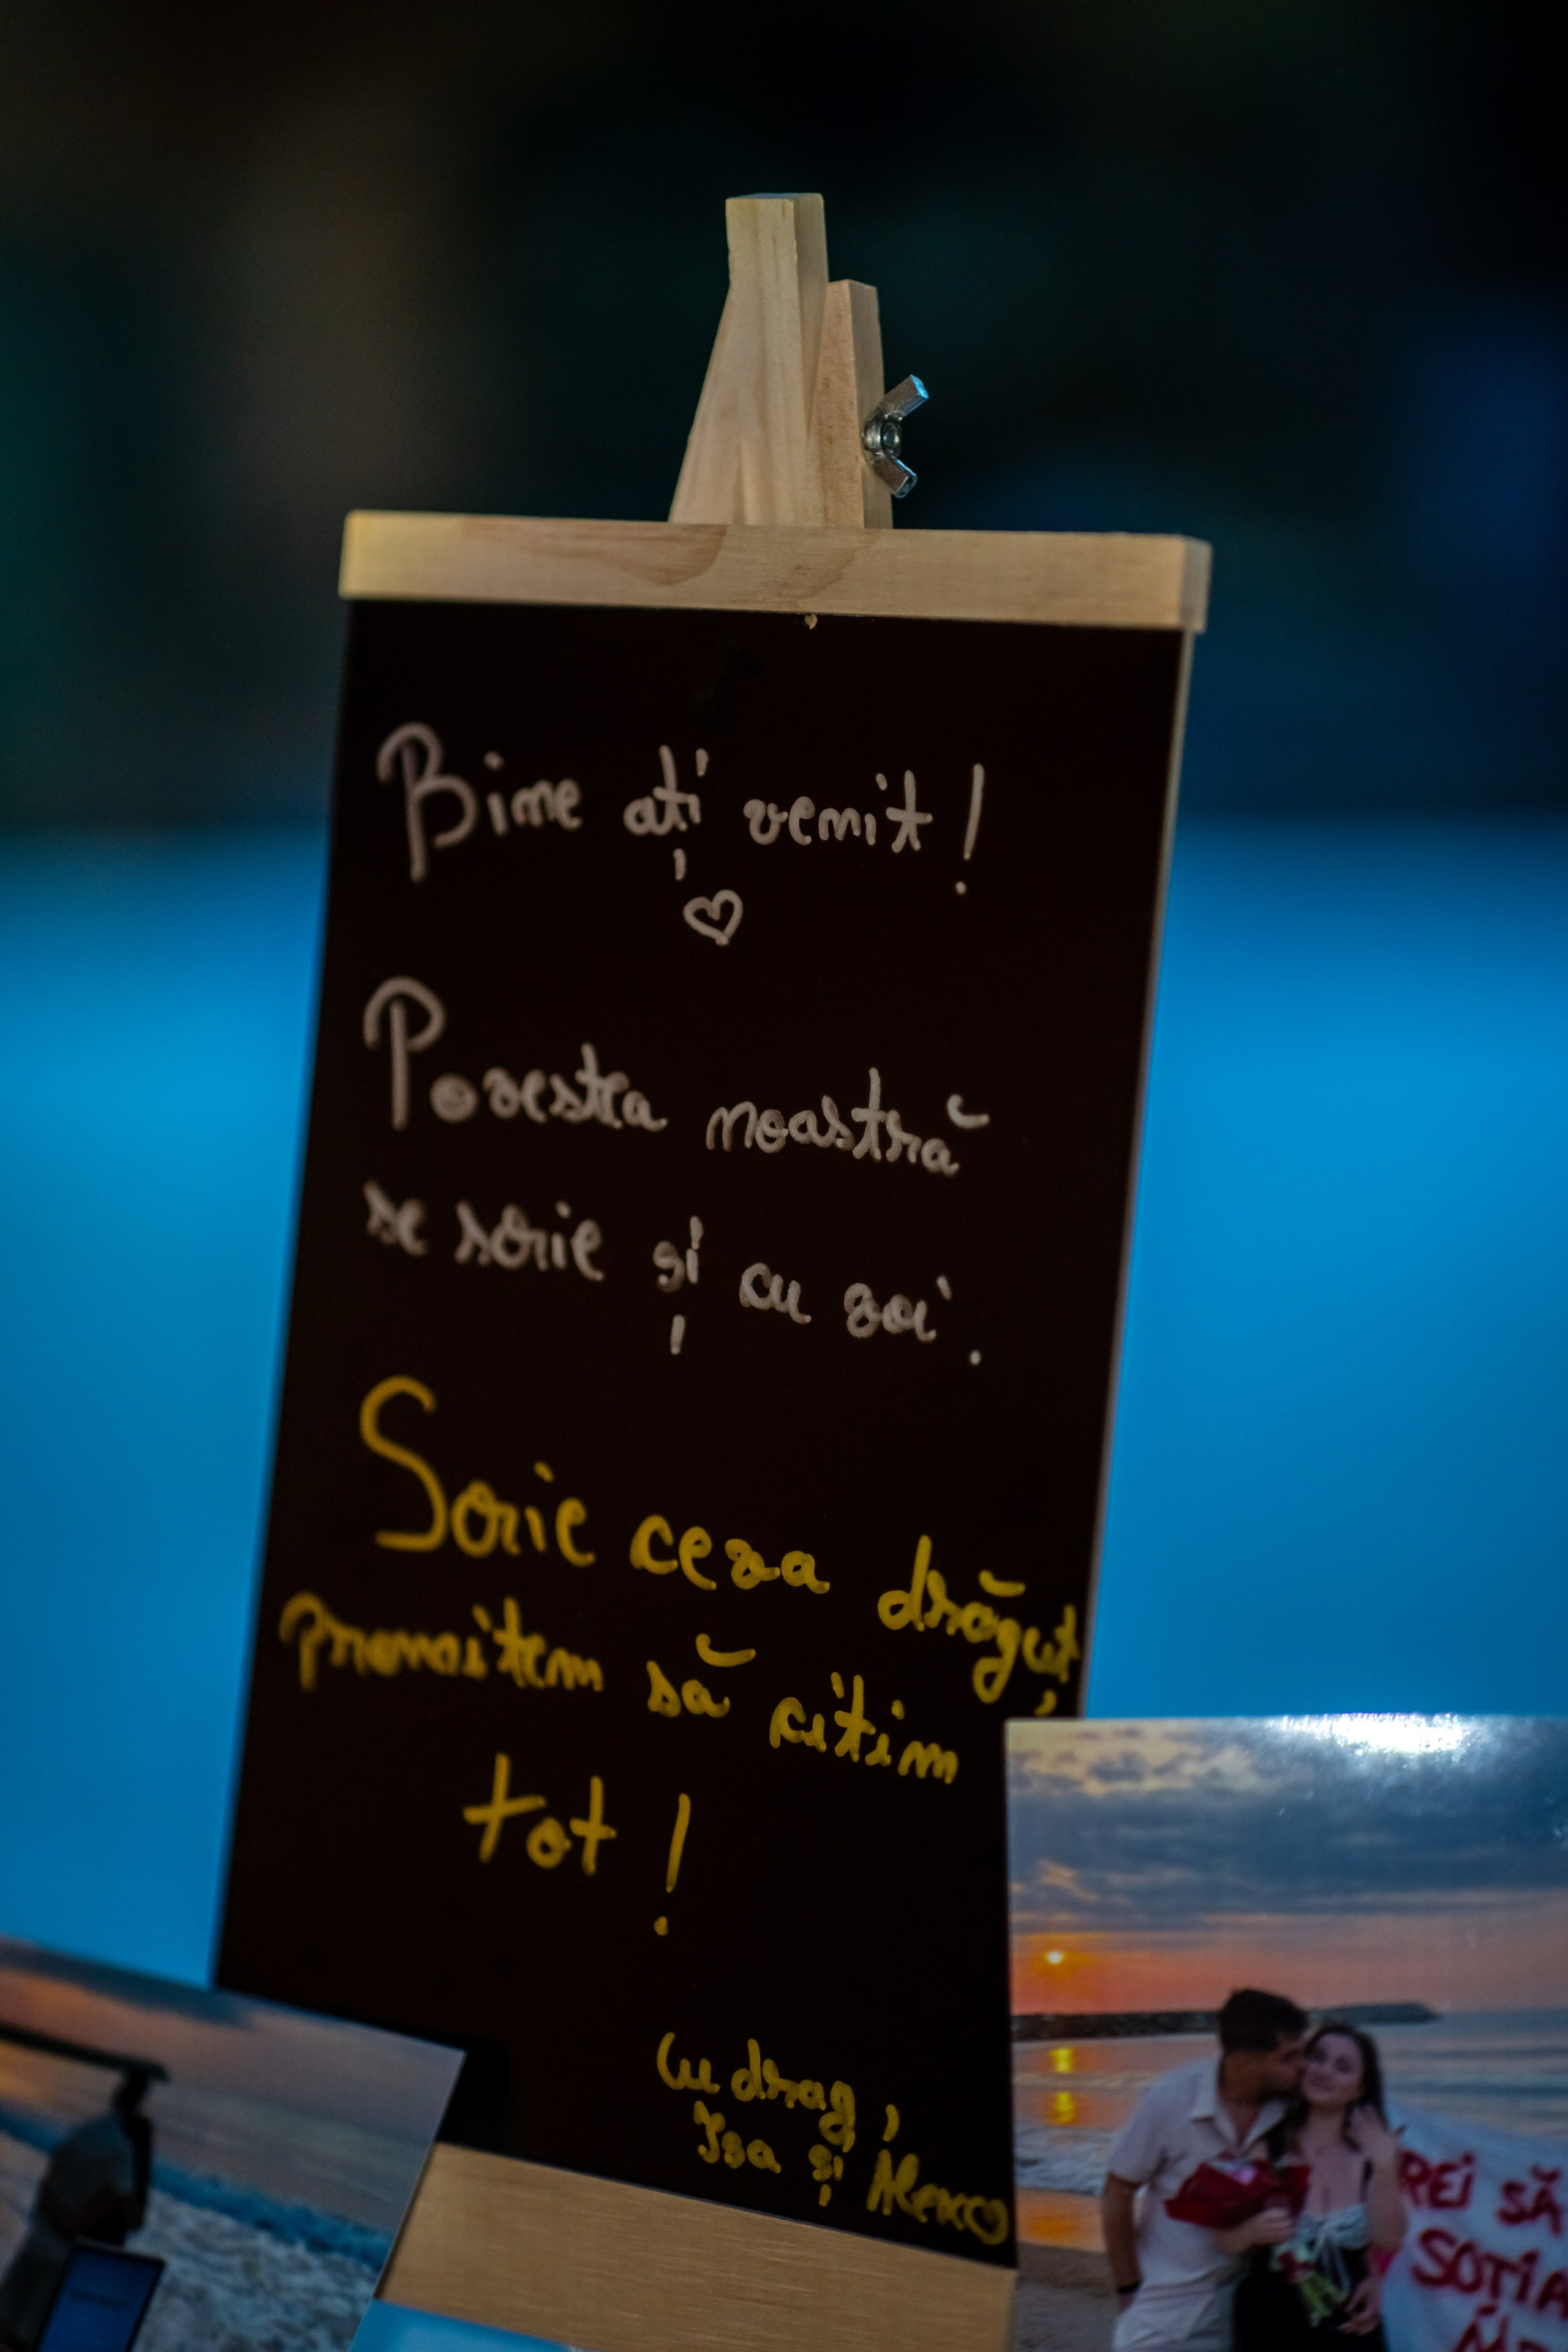 Bine ați venit!
Povestea noastră
se scrie și cu voi.
Scrie ceva drăguț
promitem să citim
tot!
Cu drag,
Isa și Alex
REI SĂ
SOȚIA